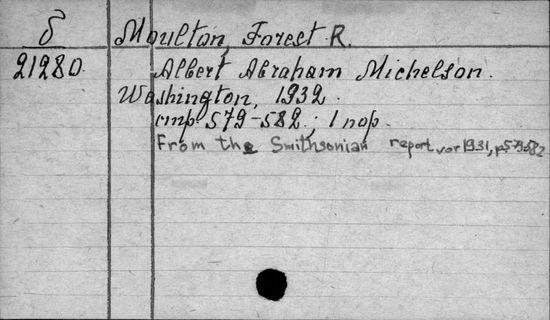 δ Moulton, Forest R.
21280 Albert Abraham Michelson.
Washington, 1932.
стр 579-582; 1 пор.
From the Smithsonian report vor 1931, p. 579-582